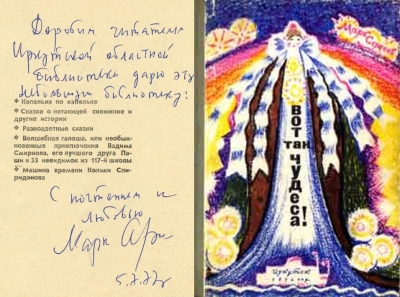 Дорогим читателям
Иркутской областной
библиотеки дарю эту
небольшую библиотеку:
• Капелька по капельке
• Сказка о нетающей снежинке и
другие истории
• Разноцветные сказки
• Волшебная галоша, или необык-
новенные приключения Вадима
Смирнова, его лучшего друга Па-
ши и 33 невидимок из 117-й школы
• Машина времени Кольки Спи-
ридонова
С почтением и
любовью
Марк
5.7.77г
Марк Сергеев
ВОТ
ТАК
ЧУДЕСА!
Иркутск